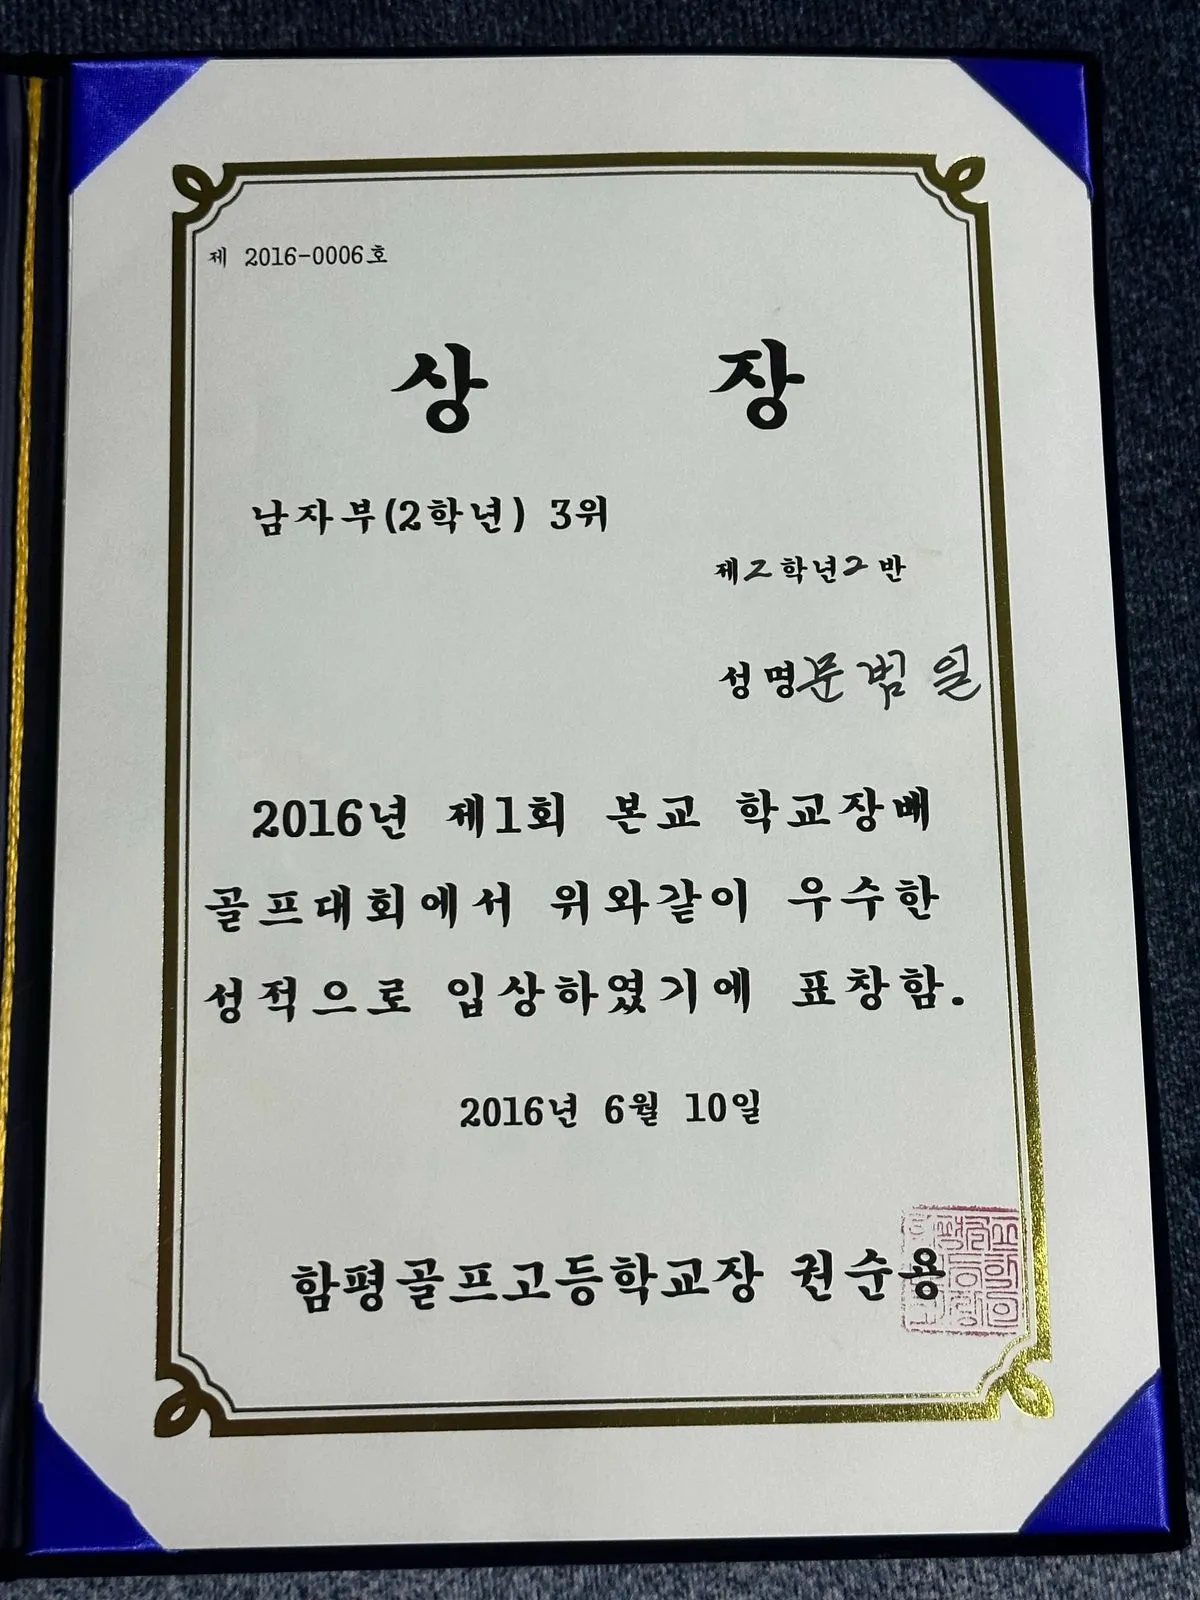 제 2016-0006호
상 장
남자부(2학년) 3위
제2학년2반
성명문범일
2016년 제1회 본교 학교장배
골프대회에서 위와같이 우수한
성적으로 입상하였기에 표창함.
2016년 6월 10일
함평골프고등학교장 권순용